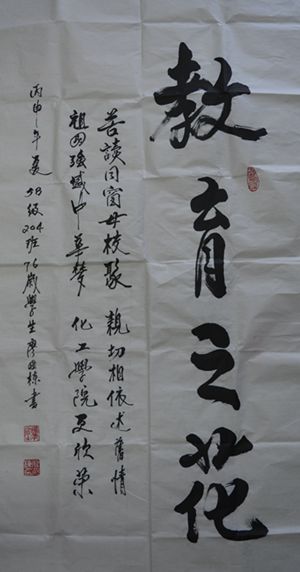 教育之花
苦讀同窗母校聚 親切相依述舊情
祖國強盛中華梦 化工學院更欣荣
丙申年夏 58级204班76歲學生廖書